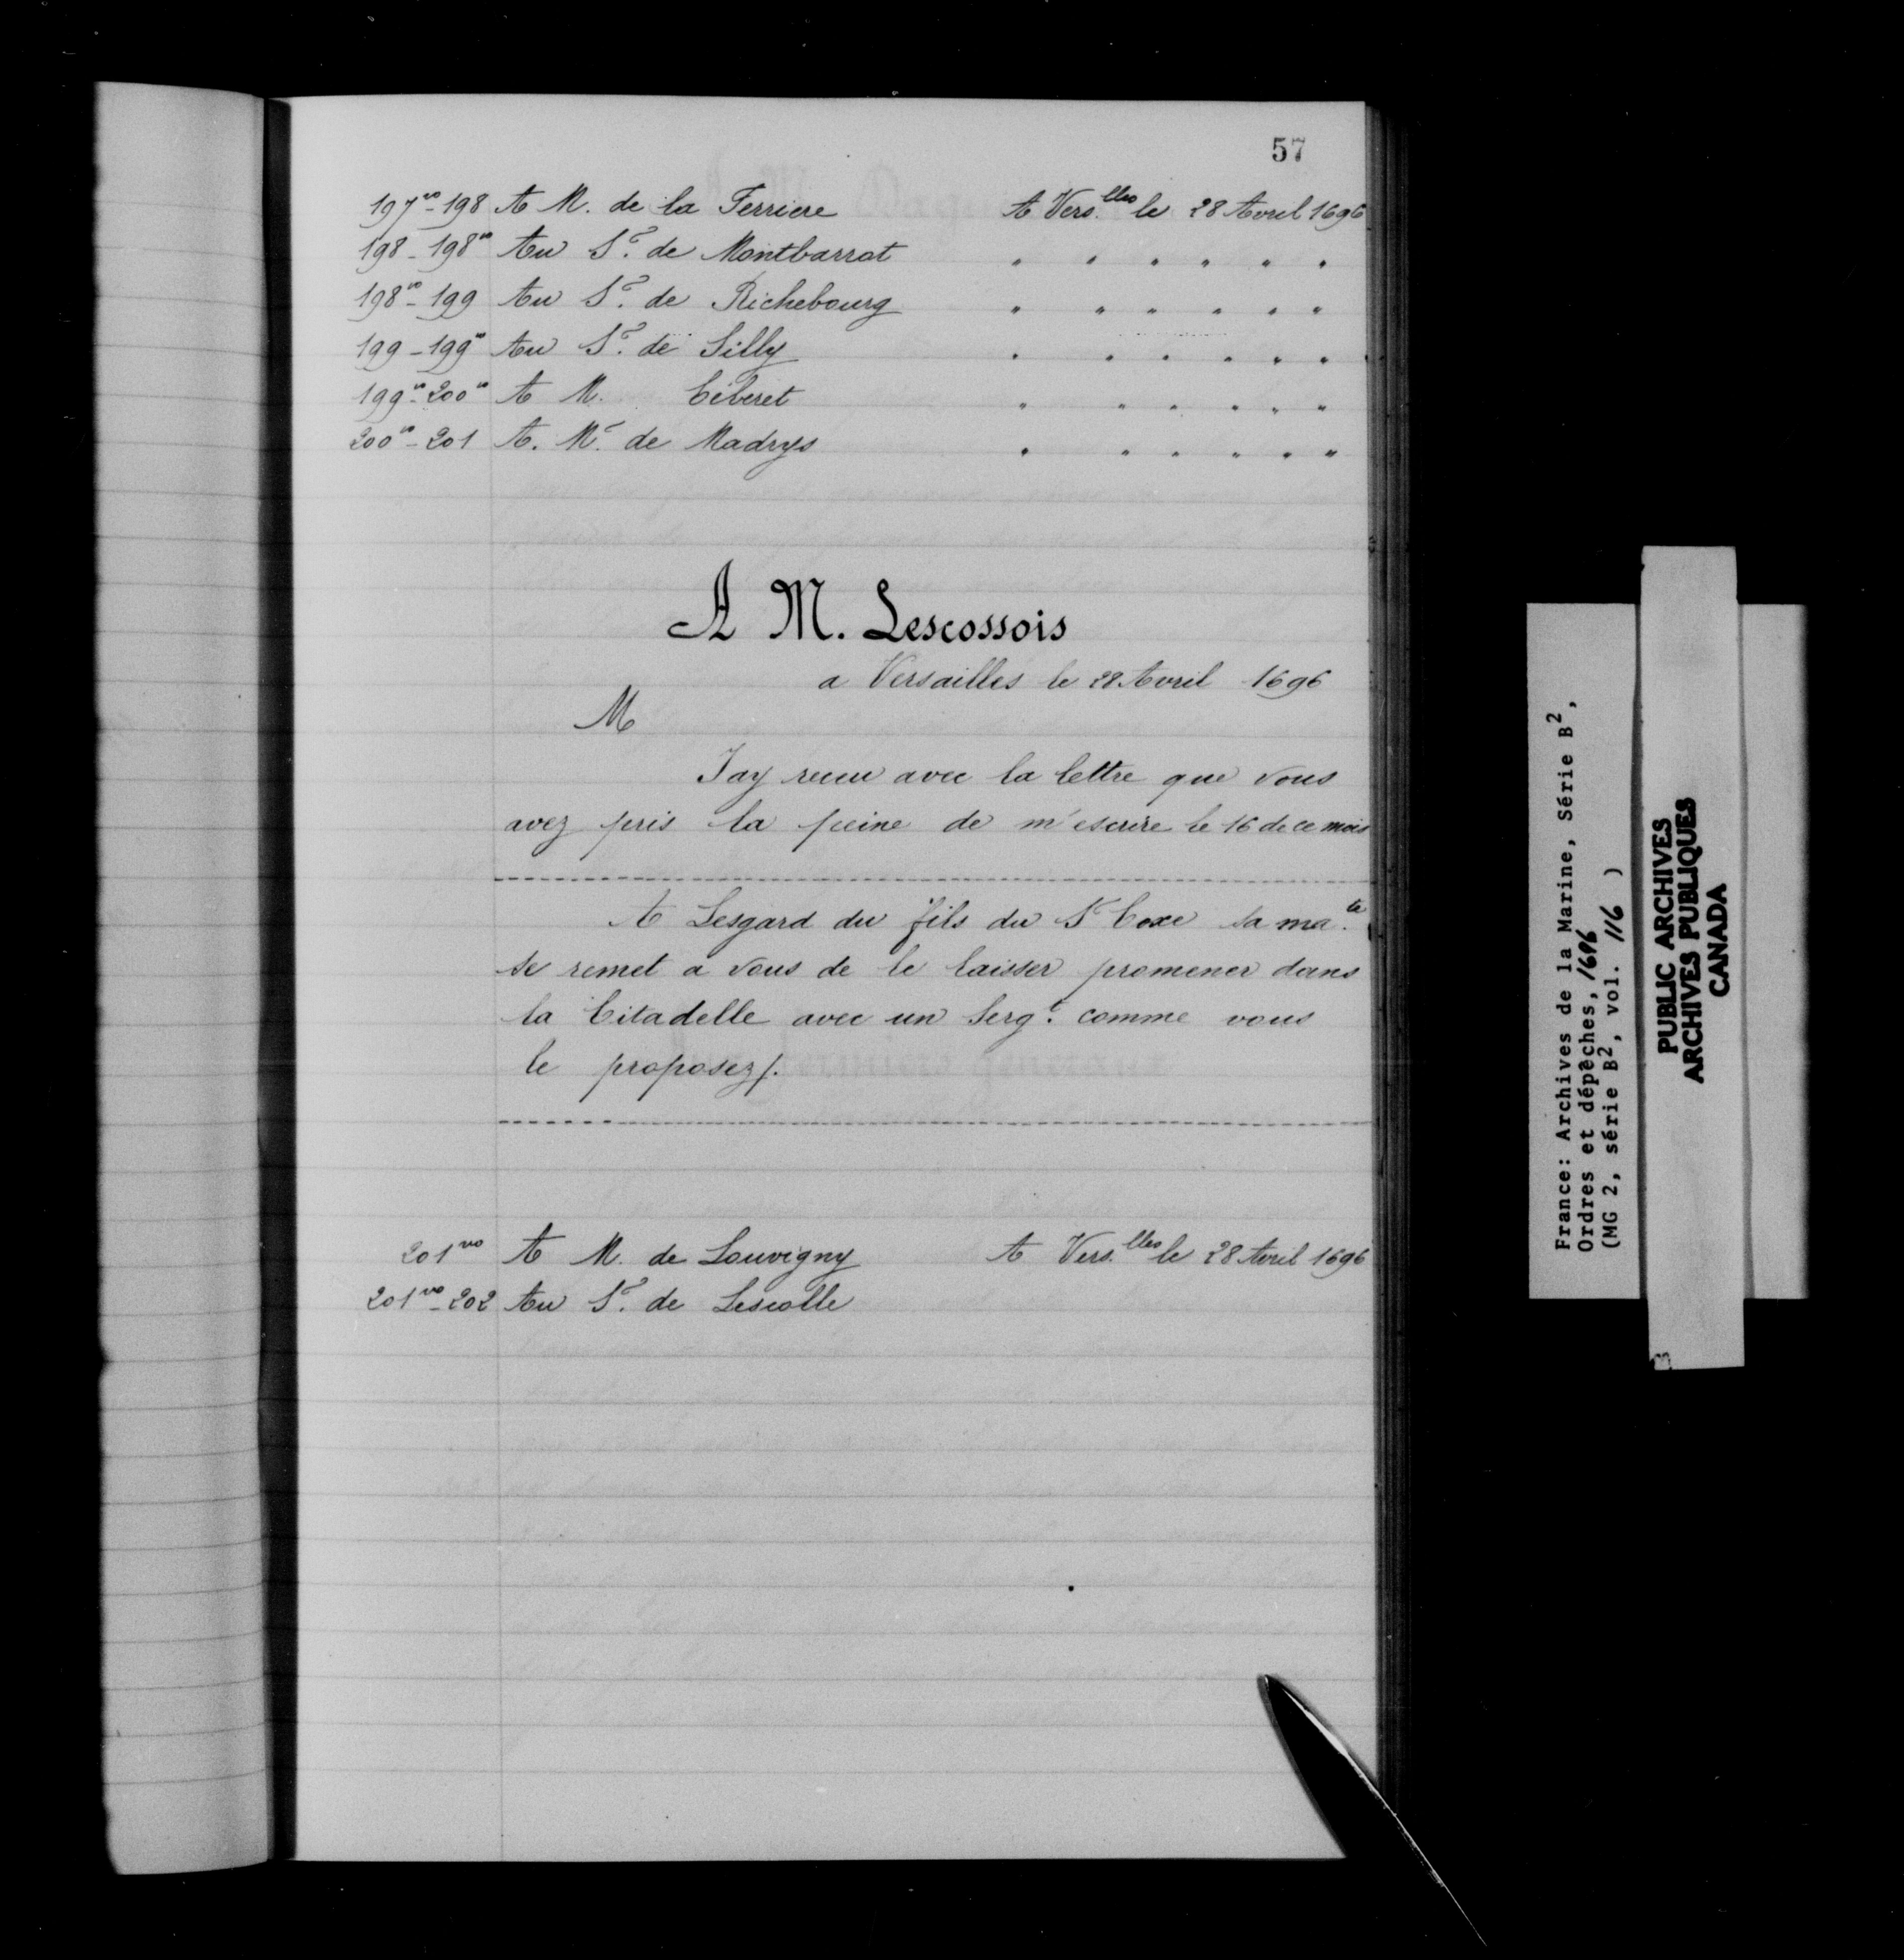 57
197vo-198 A M. de la Ferriere A Vers.lles le 28 Avril 1696
198-198vo Au Sr. de Montbarrot " " " " " "
198vo-199 Au Sr. de Richebourg " " " " " "
199-199vo Au Sr. de Silly " " " " " "
199vo-200vo A M. Céberet " " " " " "
200vo-201 A. Mr. de Madrys " " " " " "
A M. Lescossois
a Versailles le 28 Avril 1696
M
Jay receu avec la lettre que vous
avez pris la peine de m'escrire le 16 de ce mois
A Lesgard du fils du Sr Coxe sa ma.té
se remet a vous de le laisser promener dans
la Citadelle avec un Sergt. comme vous
le proposez/.
201vo A M. de Louvigny A Vers.lles le 28 Avril 1696
201vo-202 Au Sr. de Lescolle
France: Archives de la Marine, Série B2,
Ordres et dépêches, 1696
(MG 2, série B2, vol. 116 )
PUBLIC ARCHIVES
ARCHIVES PUBLIQUES
CANADA